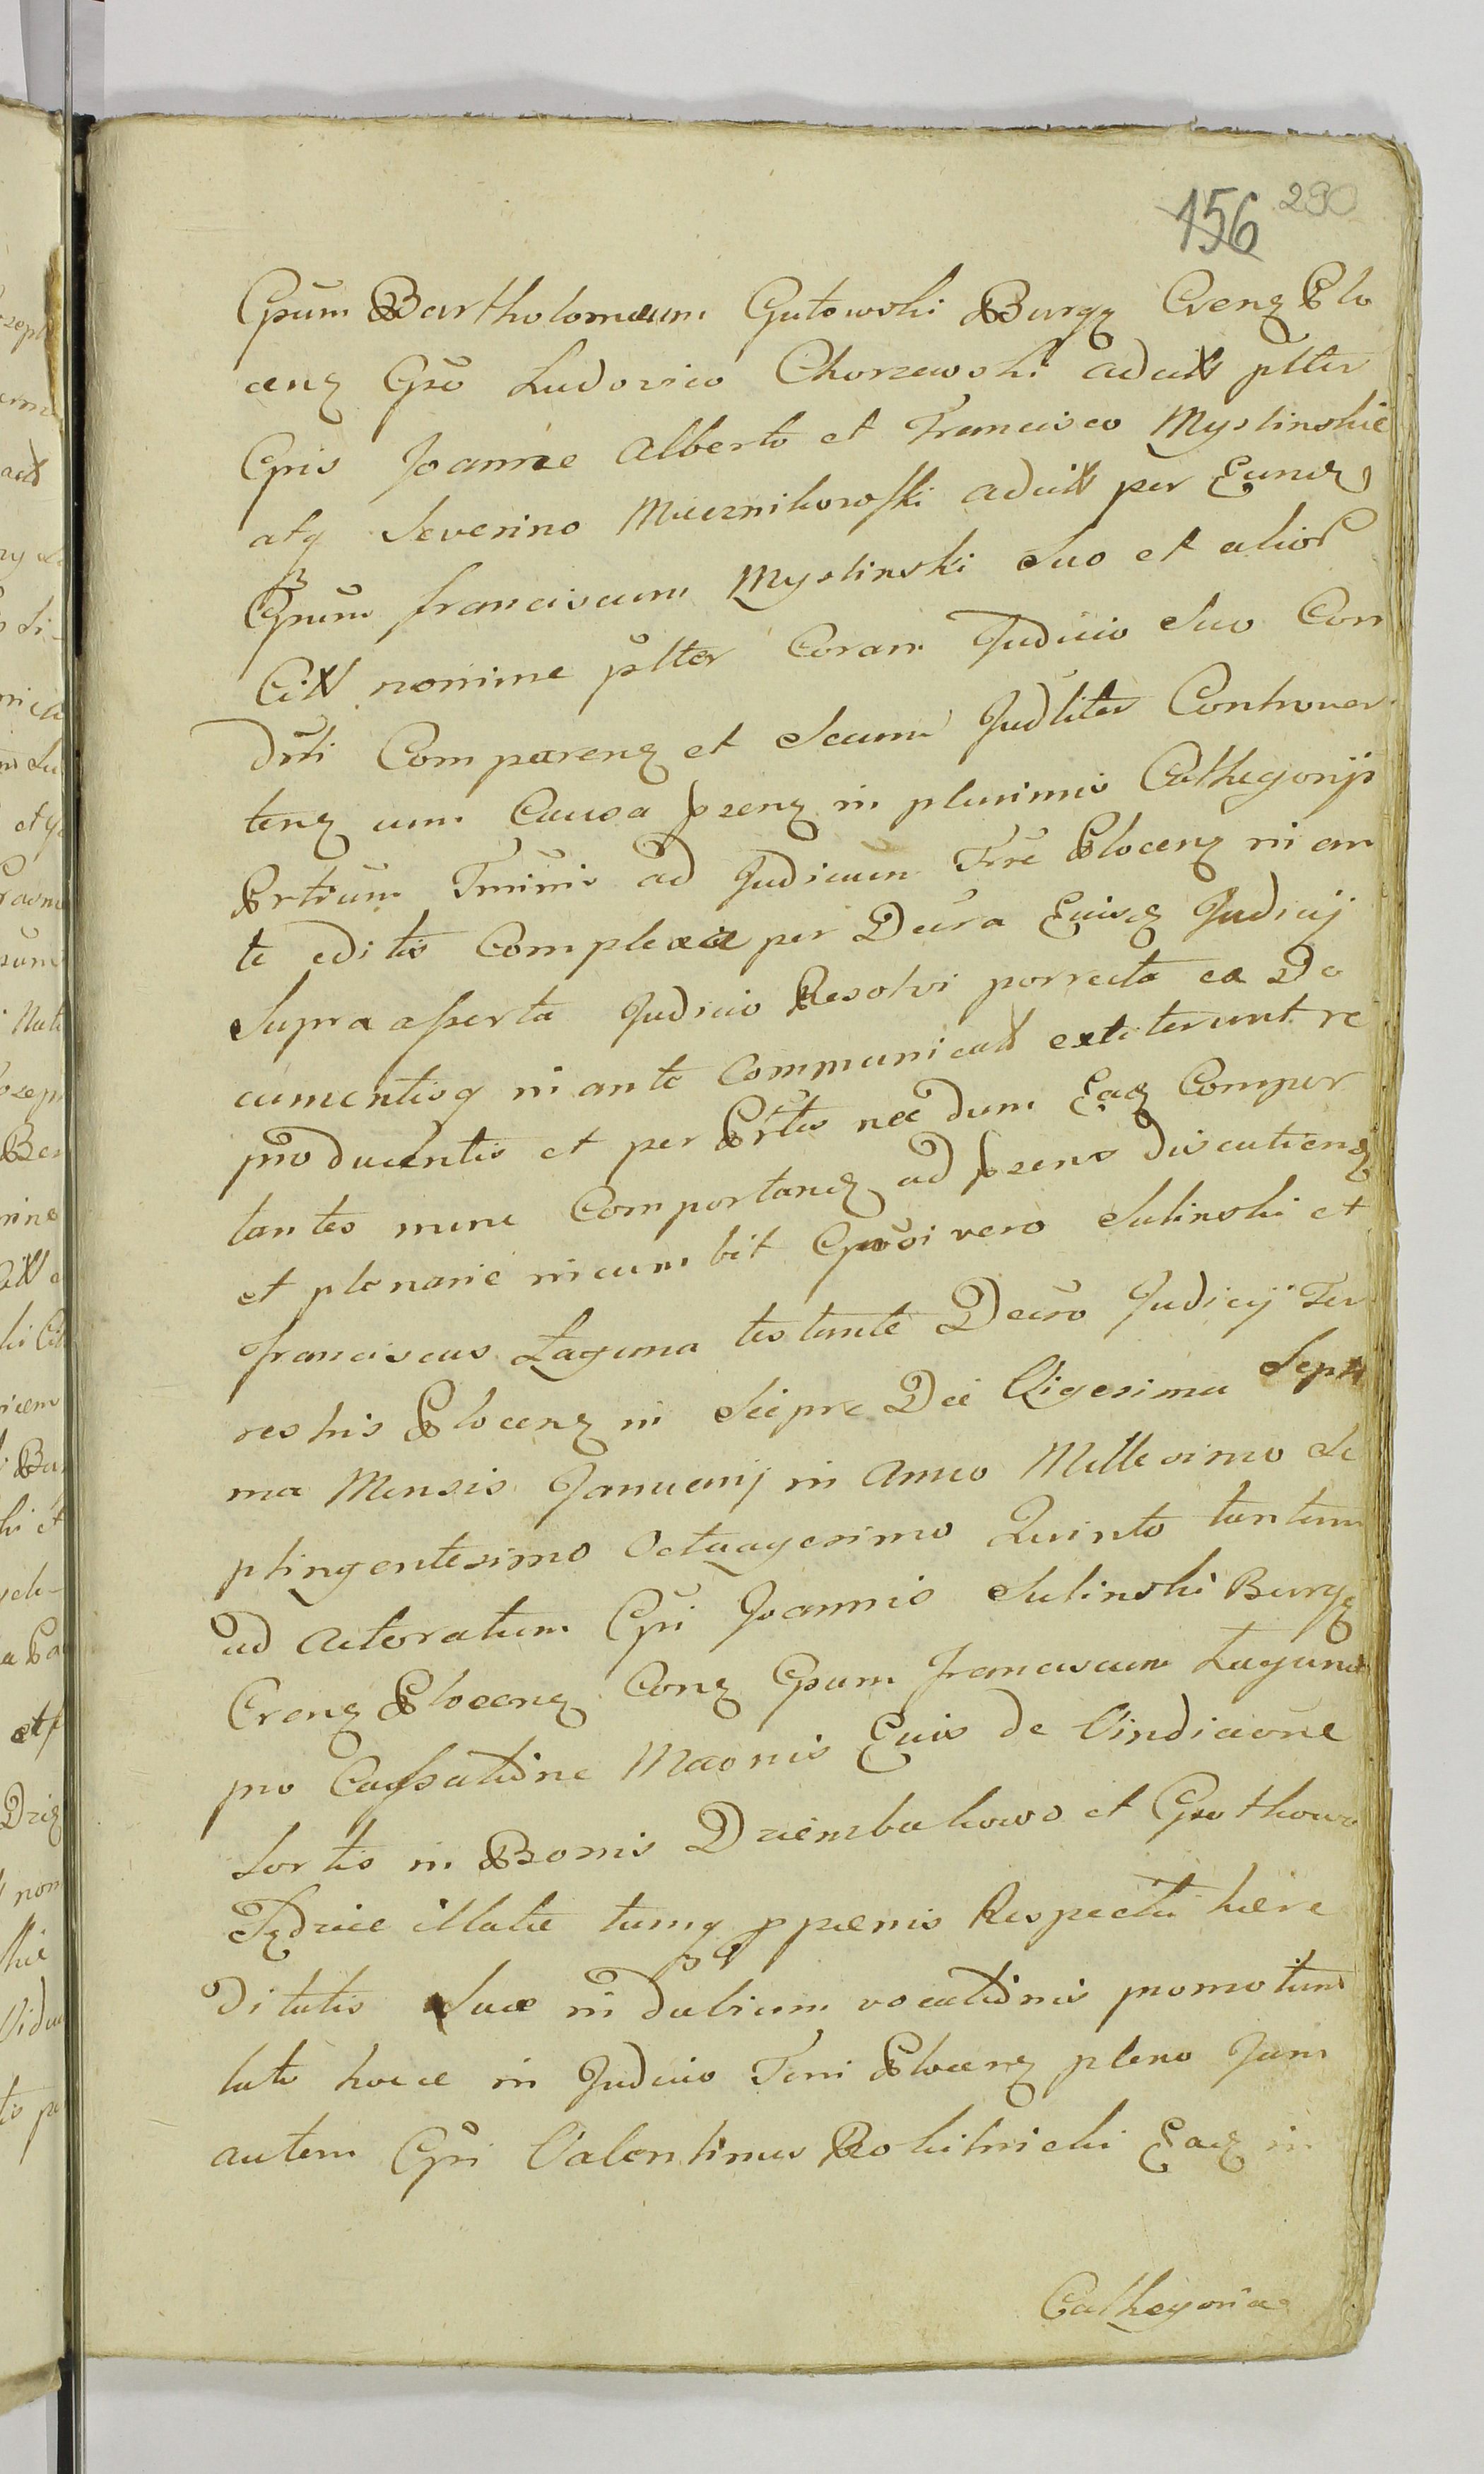 156 290
Gsum Bartholomæum Gutowski Burgz Crenz Plo
cenz Gso Ludovico Chorzewski adcitt pltter
Gsis Joanne Alberto et Francisco Myslinskie
atq Severino Miecznikowski adcitt per Eundz
Gsum franciscum Myslinski Suo et alior
Citt nomine pltter Coram Judicio Suo Con
dnti Comparenz et Secum Judliter Controver
tenz cum Causa przenz in plurimis Cathegorijs
Prtium Tminis ad Judicium Trre Plocenz in an
te editis Complexa per Decra Eiusz Judicij
Supra aperta Judicio Resolvi porrecta ex Do
cumentisq in ante Communicatt extiterunt re
producentis et per Prtes nec dum Eaz Compor
tantes nunc Comportanz ad przens discutienz
et plenarie incumbit Gsosi vero Sulinski et
franciscus Laguna testante Decro Judicij Ter
reshis Plocenz in Sciprc Die Vigesima Septi
ma Mensis Januarij in Anno Millesimo Se
ptingentesimo Octuagesimo Quinto tantum
ad Actoratum Gsi Joannis Sulinski Burgz
Crenz Plocenz Conz Gsum franciscum Laguna
pro Cassatione Maonis Eius de Vindicaone
Sortis in Bonis Dziembakowo et Grothowo
Tzdzice illatæ tumq p pænis Respectu hære
ditatis Suæ in dubium vocationis promotum
lato hocce in Judicio Trri Plocenz pleno Jam
autem Gsi Valentinus Rokitnicki Eaz in
Cathegoria